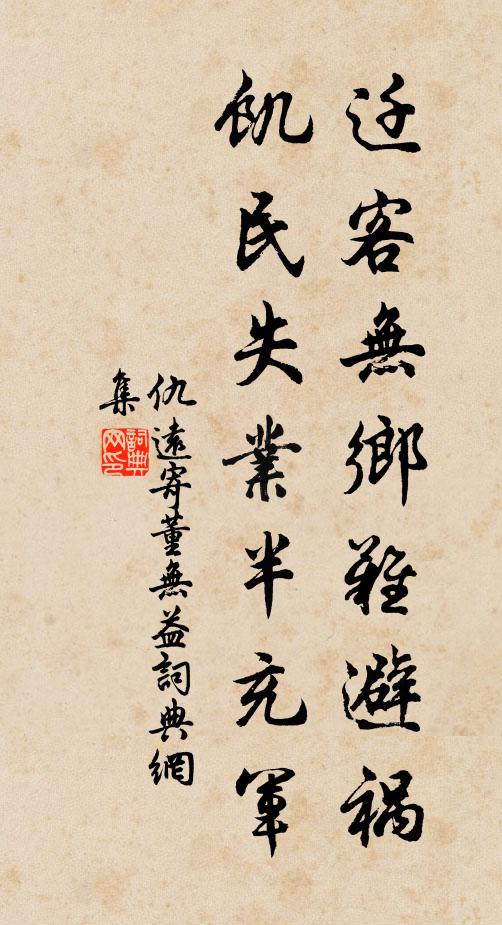 迁客無鄉難避禍
飢民失業半充軍
仇遠寄董無益詞典網
集
詞典網印